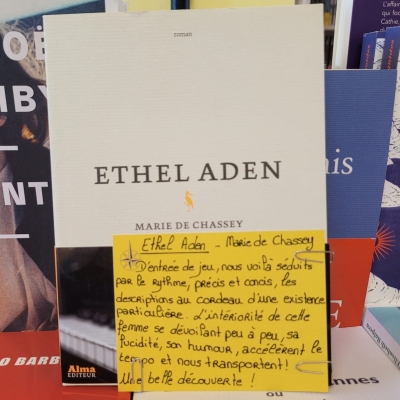 roman
ETHEL ADEN
MARIE DE CHASSEY
Ethel Aden - Marie de Chassey
D'entrée de jeu, nous voilà séduits
par le rythme, précis et concis, les
descriptions au cordeau d'une existence
particulière. L'intériorité de cette
femme se dévoilant peu à peu, sa
lucidité, son humour, accélèrent le
tempo et nous transportent !
Une belle découverte !
Alma
EDITEUR
L'affaire
qui foc
Cathie,
BARB